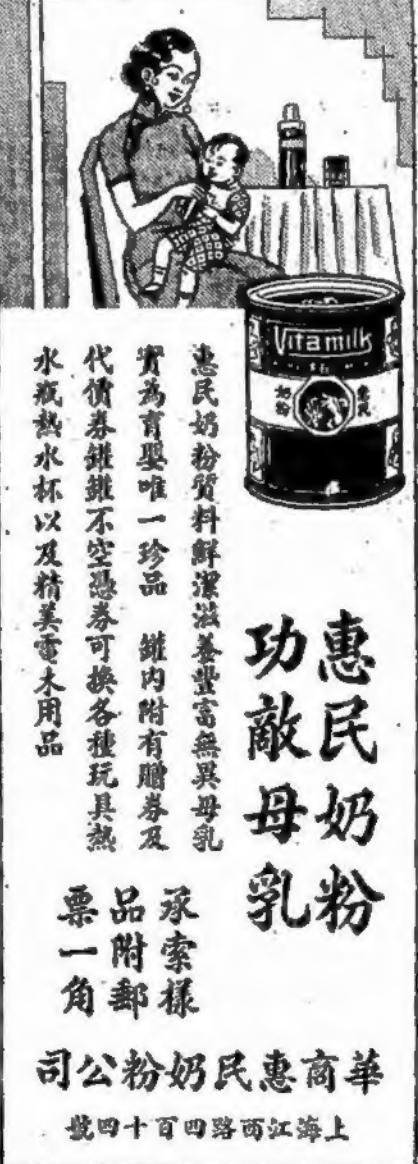 Vitamilk
惠民
奶粉
惠民奶粉
功敵母乳
惠民奶粉質料鮮潔滋養豐富無異母乳
實為育嬰唯一珍品 罐內附有贈券及
代價券罐罐不空憑券可換各種玩具熱
水瓶熱水杯以及精美電木用品
承索樣
品附郵
票一角
華商惠民奶粉公司
上海江西路四百十四號